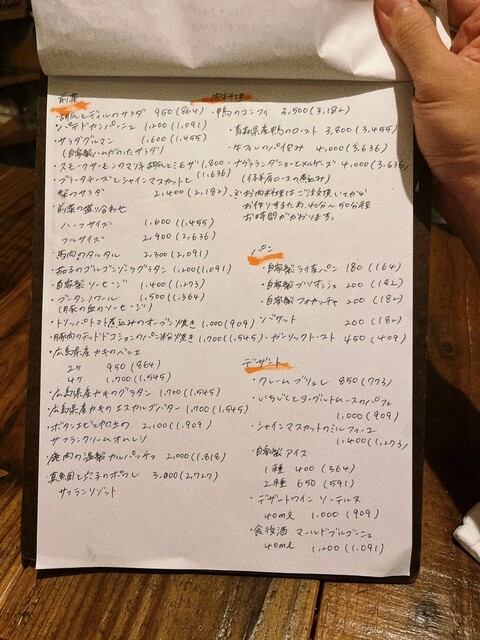 前菜
・胡瓜とディルのサラダ 950(864)
・パテドカンパーニュ 1,200(1,091)
・サラダグルマン 1,600(1,455)
(自家製ハムがのったサラダ)
・スモークサーモンのマリネ 胡瓜とミモザ 1,800(1,636)
・ブラータチーズとシャインマスカットと
梨のサラダ 2,400(2,182)
・前菜の盛り合わせ
ハーフサイズ 1,600(1,455)
フルサイズ 2,900(2,636)
・馬肉のタルタル 2,300(2,091)
・茄子のゴルゴンゾーラグラタン 1,200(1,091)
・自家製ソーセージ 1,400(1,273)
・ブータンノワール 1,500(1,364)
(豚の血のソーセージ)
・トリッパトマト煮込みのオーブン焼き 1,000(909)
・豚肉のテッドドコションのパン粉焼き 1,700(1,545)
・広島県産カキのベニエ
2ケ 950(864)
4ケ 1,700(1,545)
・広島県産カキのグラタン 1,700(1,545)
・広島県産カキのエスカルゴバター 1,700(1,545)
・ボタンエビと帆立の 2,100(1,909)
サフランクリームオムレツ
・鹿肉の温製カルパッチョ 2,000(1,818)
・真魚園と穴子のポワレ 3,000(2,727)
サフランリゾット
肉料理
・鴨のコンフィ 3,500(3,182)
・青森県産鴨のロースト 3,800(3,455)
・牛ホホのパイ包み 4,000(3,636)
・ナヴァランダニョーとメルゲーズ 4,000(3,636)
(仔羊肩ロースの煮込み)
※お肉料理はご注文してから
お作りするため、40分〜50分程
お時間がかかります。
パン
・自家製ライ麦パン 180(164)
・自家製ブリオッシュ 200(182)
・自家製フォカッチャ 200(182)
・バゲット 200(182)
・ガーリックトースト 450(409)
デザート
・クレームブリュレ 850(773)
・いちじくとヨーグルトムースのパフェ
1,000(909)
・シャインマスカットのミルフィーユ
1,400(1,273)
・自家製アイス
1種 400(364)
2種 650(591)
・デザートワイン ソーテルヌ
40ml 1,000(909)
・食後酒 マールドブルゴーニュ
40ml 1,200(1,091)